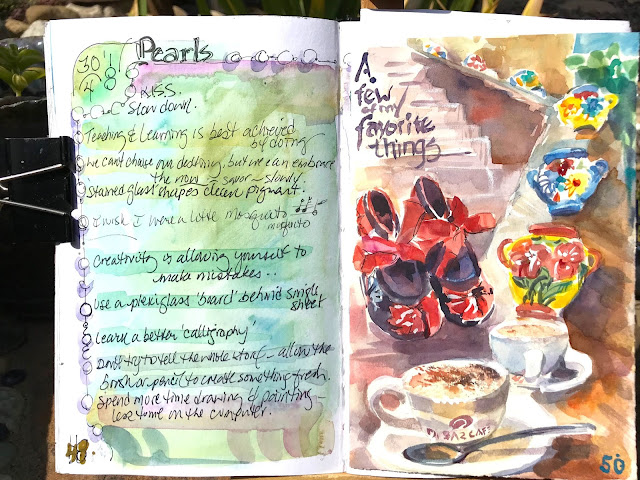 Pearls
30
4
18
K.I.S.S.
Slow down.
Teaching & Learning is best achieved
by doing
we can't choose our destiny, but we can embrace
the now - savor - slowly.
stained glass shapes clean
I wish I were a little mosquito
mosquito
Creativity is allowing yourself to
make mistakes..
use a plexiglass 'board' behind single
sheet
learn a better 'calligraphy'
Don't try to tell the whole story - allow the
brush or pencil to create something fresh.
Spend more time drawing & painting -
less time on the computer.
48
A
few
of my
favorite
things
CAFE
50